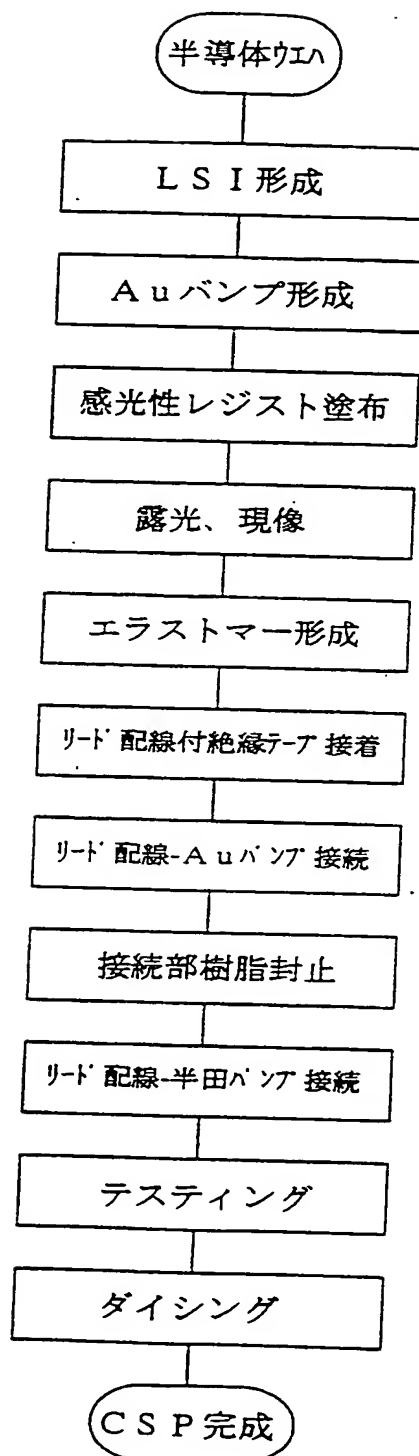 半導体ウエハ
LSI形成
Auバンプ形成
感光性レジスト塗布
露光、現像
エラストマー形成
リード配線付絶縁テープ接着
リード配線-Auバンプ接続
接続部樹脂封止
リード配線-半田バンプ接続
テスティング
ダイシング
CSP完成